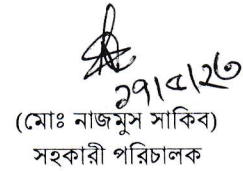 ২৭/৫/২৩
(মোঃ নাজমুস সাকিব)
সহকারী পরিচালক